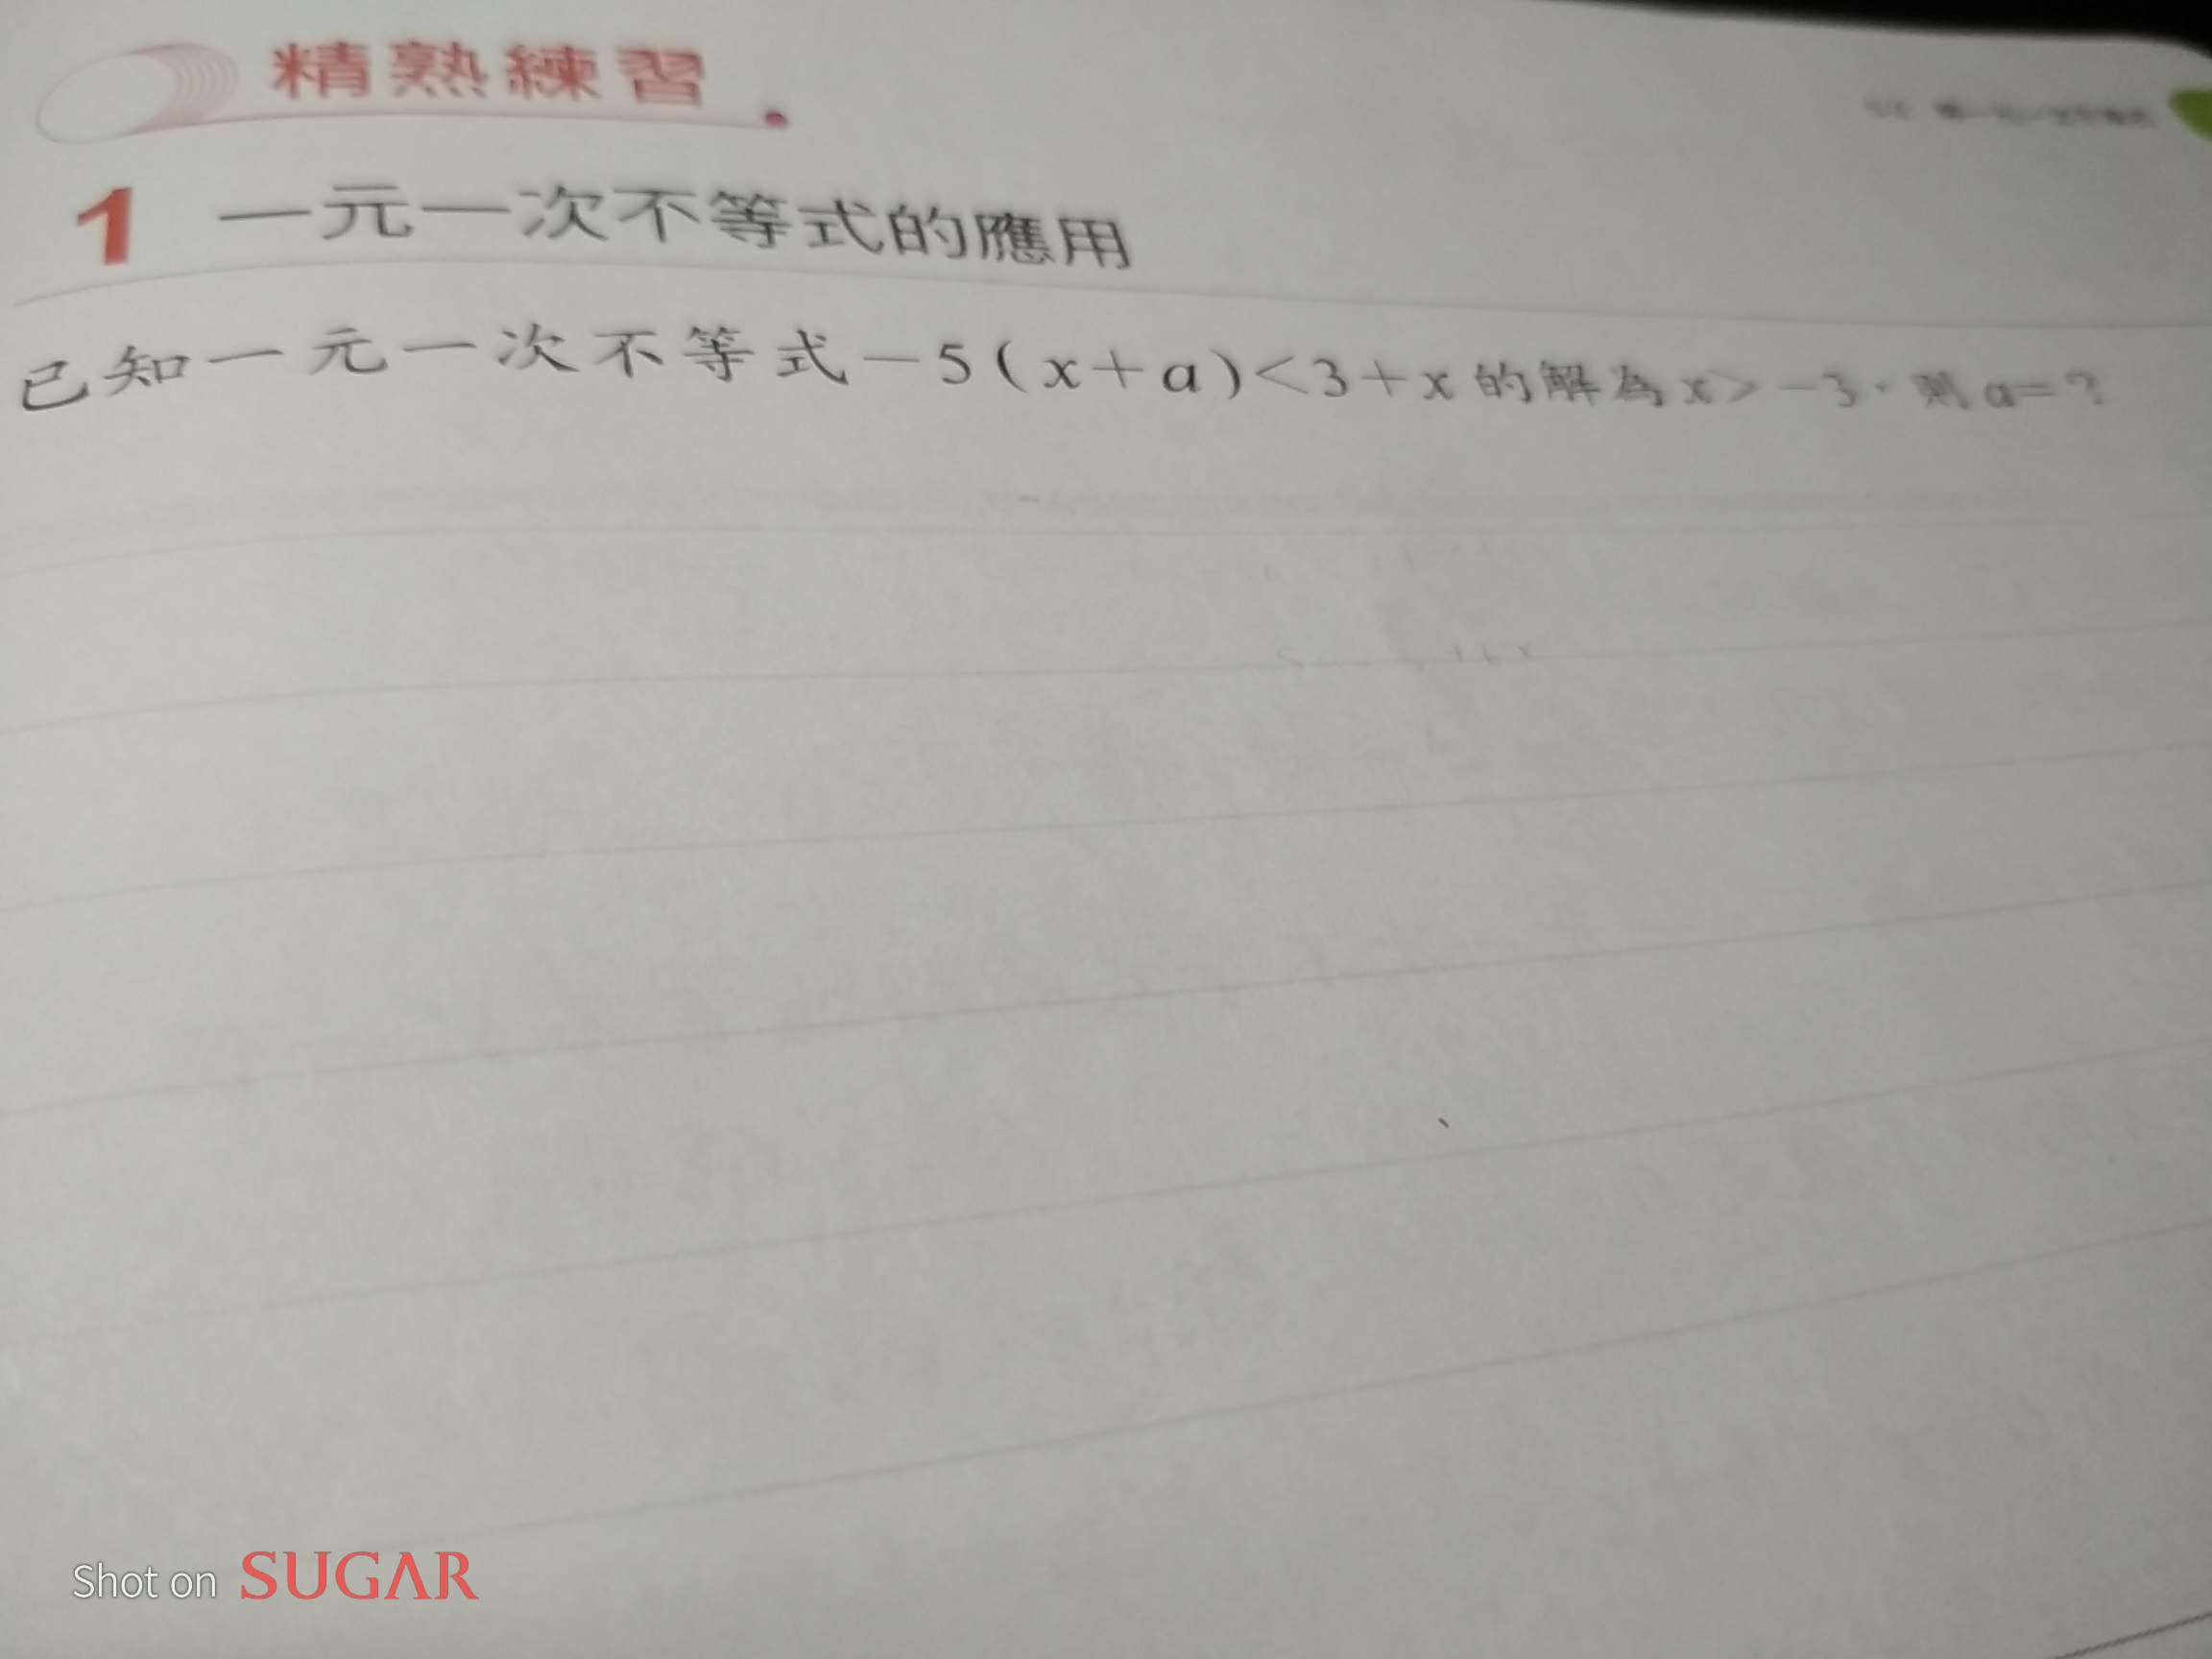 精熟練習
1 一元一次不等式的應用
已知一元一次不等式－5(x＋a)<3＋x的解為x>－3，則a＝？
Shot on SUGAR